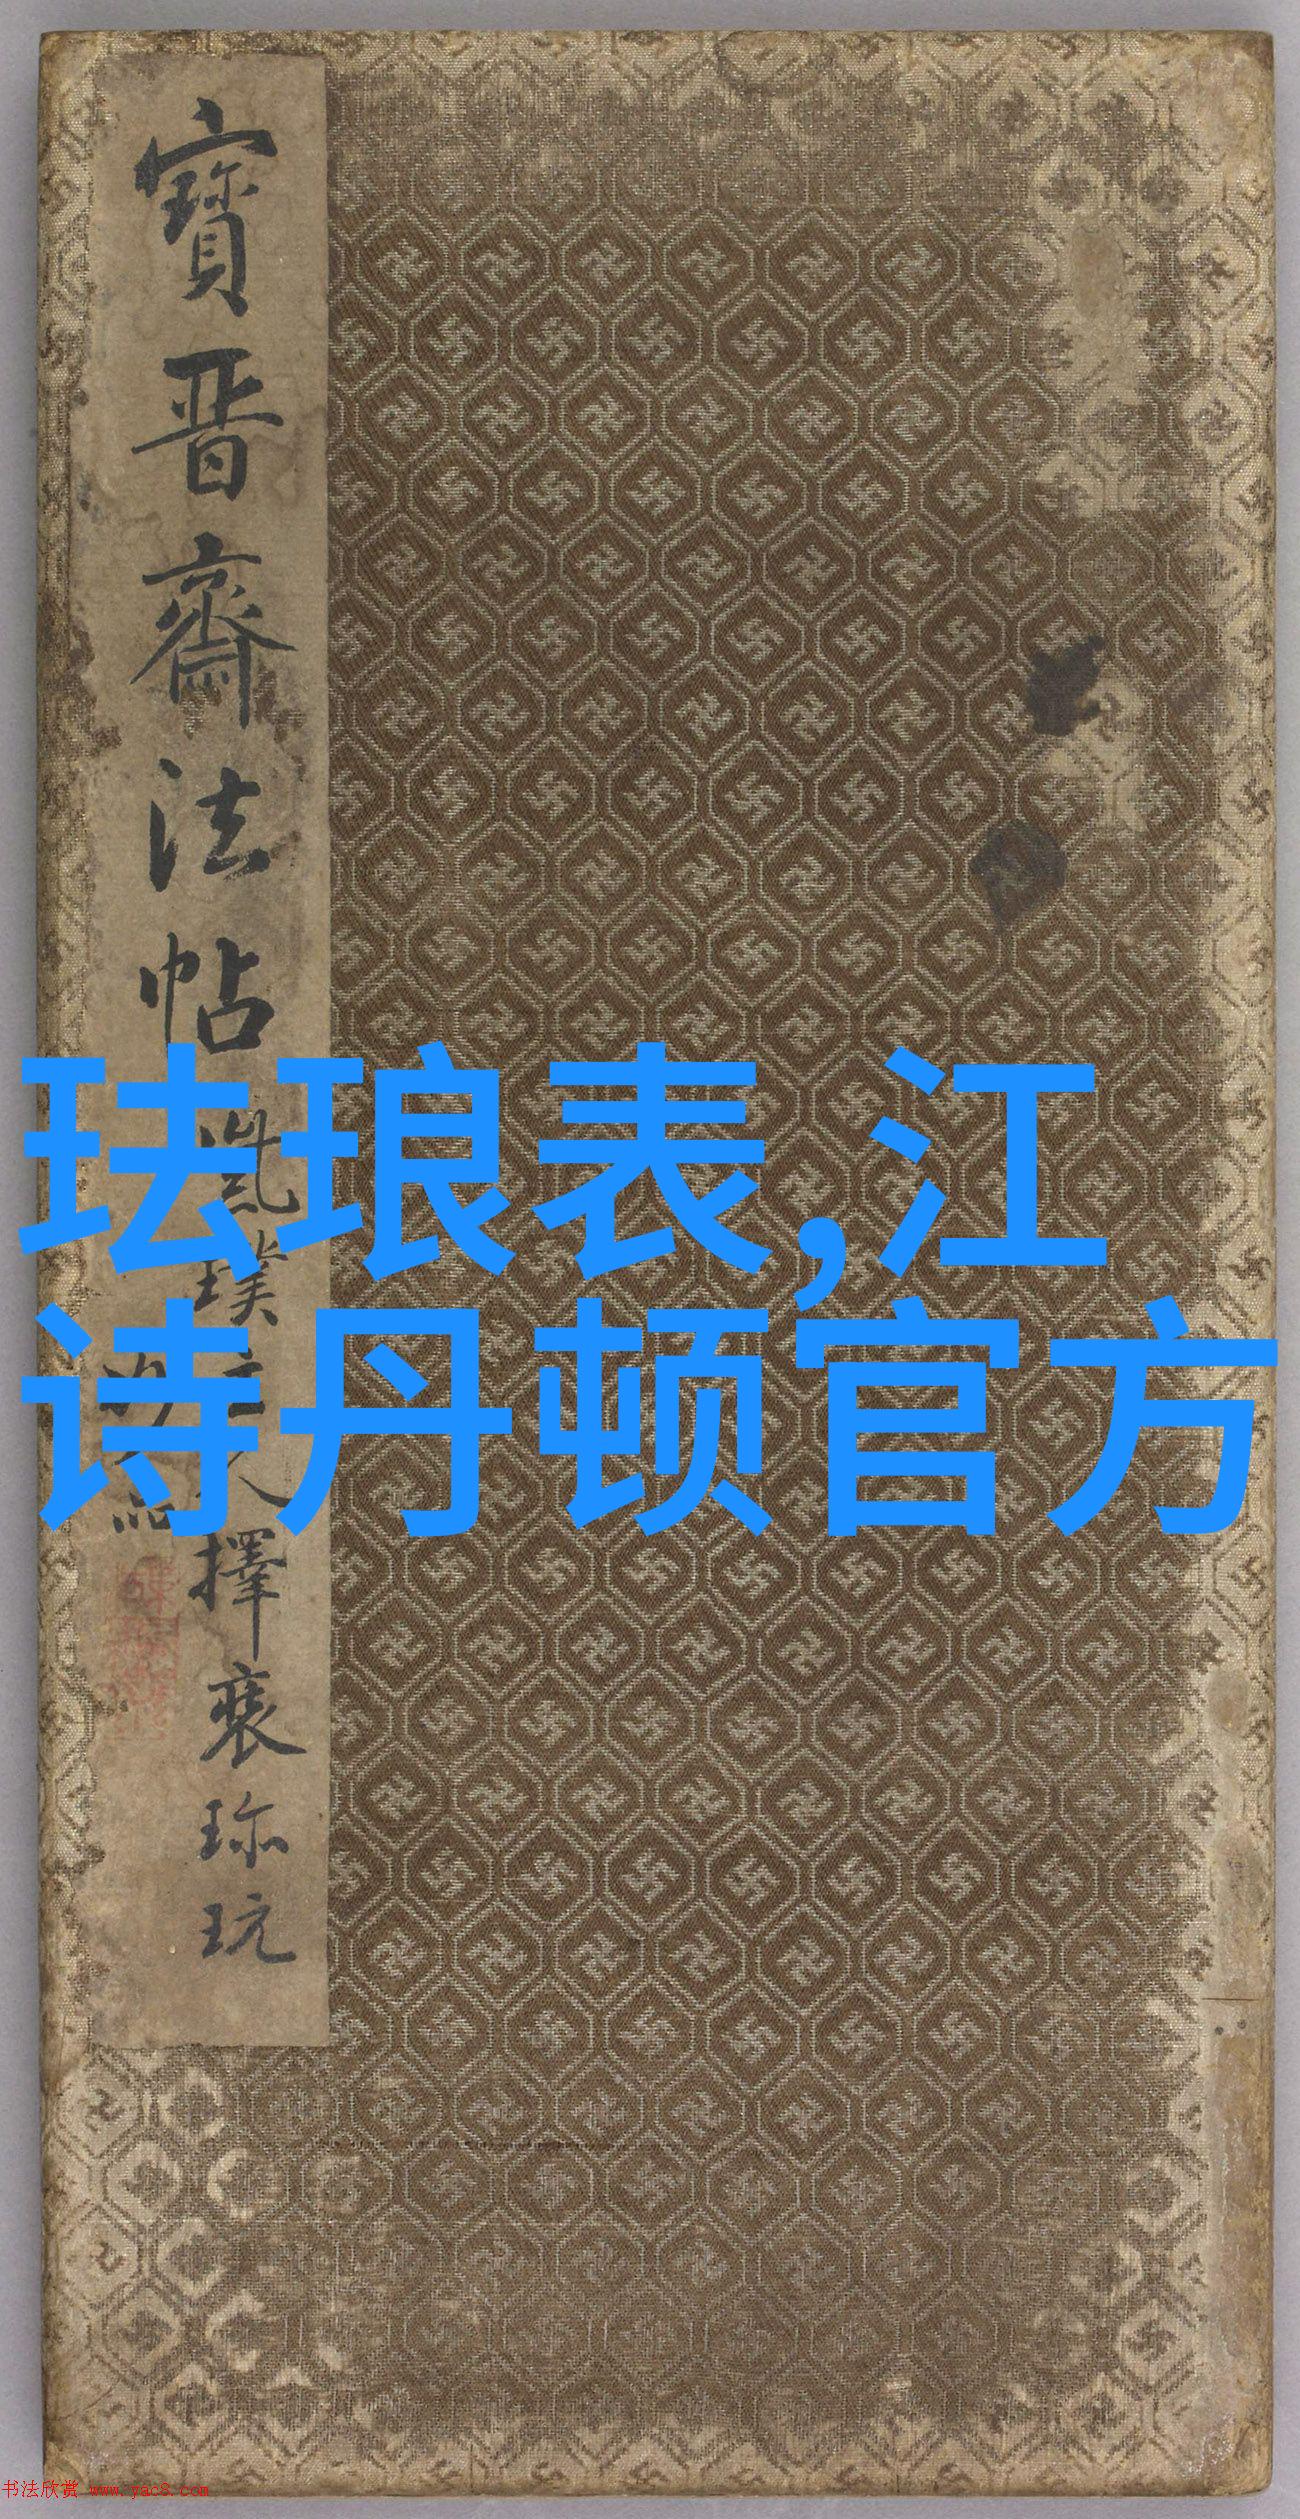 寳晋齋法帖
璞
擇裘珎玩
珐琅表,江
诗丹顿官方
书法欣赏 www.yac8.com